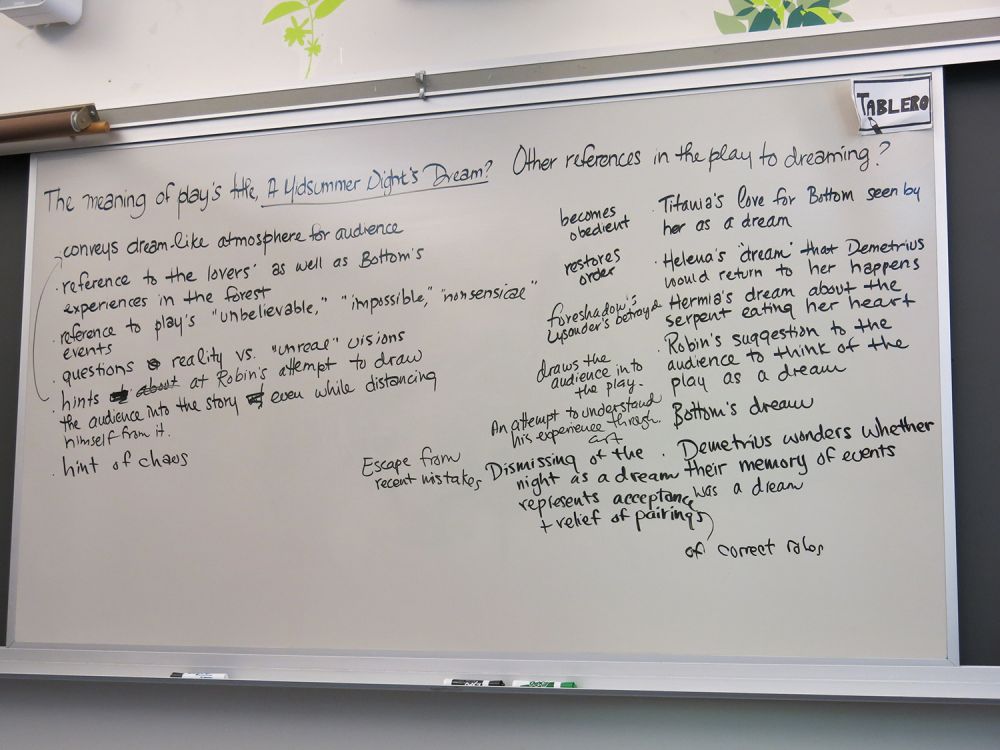 TABLERO
The meaning of play's title, A Midsummer Night's Dream?
· conveys dream-like atmosphere for audience
· reference to the lovers' as well as Bottom's
experiences in the forest
· reference to play's "unbelievable," "impossible," "nonsensical"
events
· questions reality vs. "unreal" visions
· hints about at Robin's attempt to draw
the audience into the story even while distancing
himself from it.
· hint of chaos
Other references in the play to dreaming?
becomes
obedient
· Titania's love for Bottom seen by
her as a dream
restores
order
· Helena's "dream" that Demetrius
would return to her happens
foreshadow's
Lysander's betrayal
· Hermia's dream about the
serpent eating her heart
draws the
audience into
the play.
· Robin's suggestion to the
audience to think of the
play as a dream
An attempt to understand
his experience through
art
Bottom's dream
Escape from
recent mistakes
Dismissing of the
night as a dream
represents acceptance
+ relief of pairings
of correct roles
· Demetrius wonders whether
their memory of events
was a dream